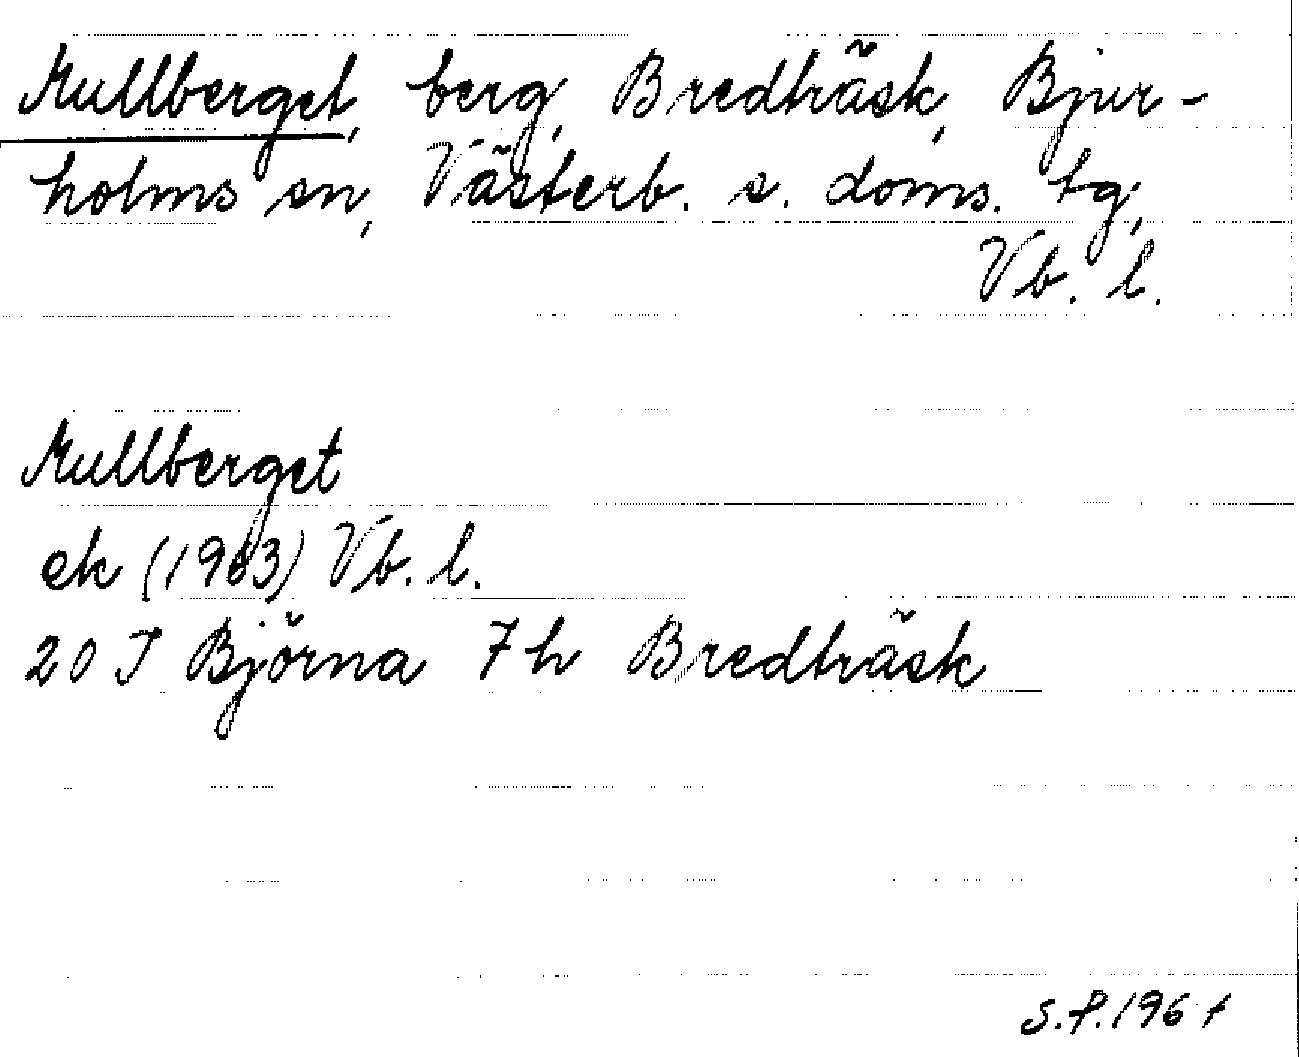 Mullberget, berg, Bredträsk, Bjur-
holms sn, Västerb. s. doms. tg,
Vb. l.
Mullberget
ek (1963) Vb. l.
20 J Björna 7 h Bredträsk